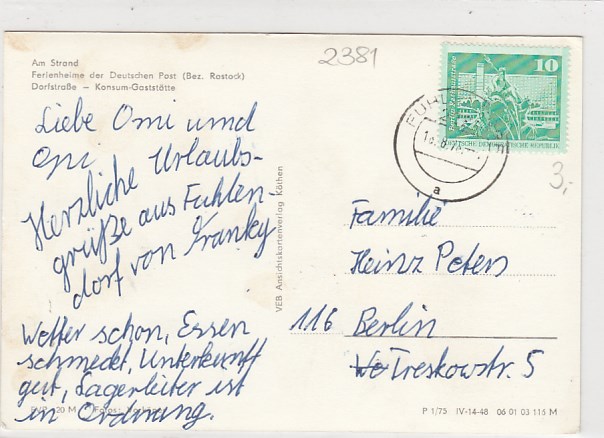 2381
Am Strand
Ferienheime der Deutschen Post (Bez. Rostock)
Dorfstraße – Konsum-Gaststätte
10
DEUTSCHE DEMOKRATISCHE REPUBLIK
a
3,-
Liebe Omi und
Opi Urlaubs-
Herzliche
grüße aus Fuhlen-
dorf von Franky
Wetter schon, Essen
schmeckt, Unterkunft
gut, Lagerleiter ist
in Ordnung.
VEB Ansichtskartenverlag Köthen
Familie
Heinz Peters
116 Berlin
Treskowstr. 5
20 M Fotos:
P 1/75 IV-14-48 06 01 03 116 M